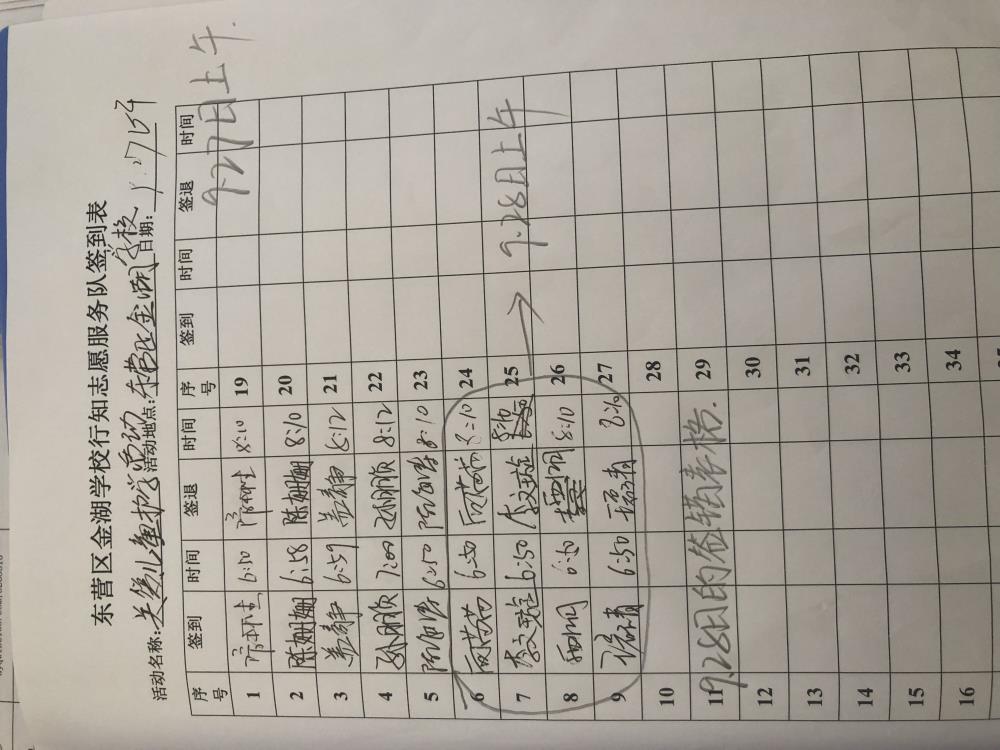 东营区金湖学校行知志愿服务队签到表
活动名称:关爱儿童护学活动 活动地点:东营区金湖学校 日期:9.27上午
序号 签到 时间 签退 时间 序号 签到 时间 签退 时间
1 6:50 8:10 19
2 陈姗姗 6:58 陈姗姗 8:10 20
3 姜静 6:59 姜静 8:12 21
4 孙丽颀 7:00 孙丽颀 8:12 22
5 6:50 8:10 23
6 6:50 8:10 24
7 李文璇 6:50 李文璇 8:10 25
8 6:50 8:10 26
9 6:50 8:10 27
10 28
11 29
12 30
13 31
14 32
15 33
16 34
9.27日上午.
→ 9.28日上午
9.28日的签错表格.